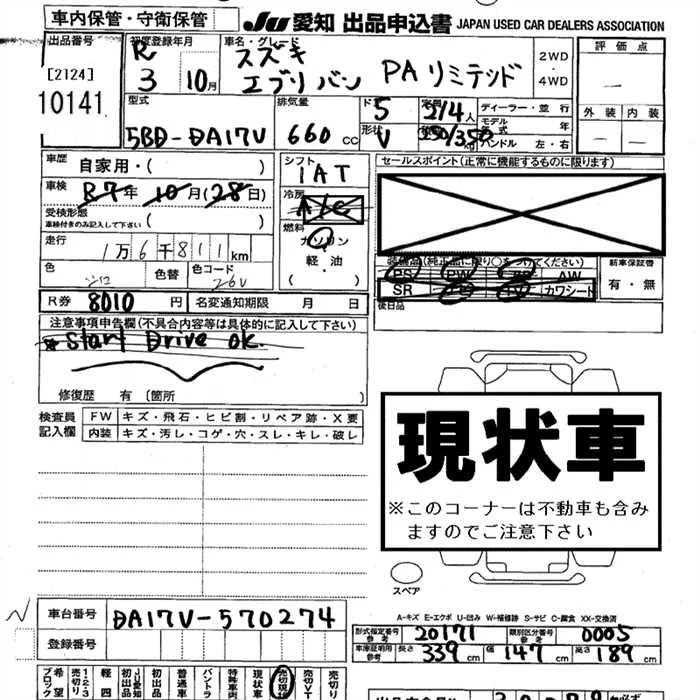 車内保管・守衛保管
JU 愛知 出品申込書 JAPAN USED CAR DEALERS ASSOCIATION
出品番号
[2124]
10141
初度登録年月
R 3 10月
車名・グレード
スズキ
エブリバン PAリミテッド
2WD
・
4WD
評価点
―
外装 内装
― ―
型式
5BD-DA17V
排気量
660 cc
ドア
5
形状
V
定員
2/4人
350/350 kg
ディーラー・並行
モデル年式 年
ハンドル 左・右
車歴 自家用・( )
車検 R7年 10月(28日)
受検形態
車検付きのみ記入して下さい ( )
走行 1万6千811km
色 シロ 色替 色コード 26U
シフト
IAT
冷房
A/C
燃料
ガソリン
・
軽・油
( )
セールスポイント(正常に機能するものに限ります)
装備品(純正品に限り○をつけてください)
PS PW AW
SR カワシート
後日品
新車保証書
有・無
R券 8010 円 名変通知期限 月 日
注意事項申告欄(不具合内容等は具体的に記入して下さい)
* Start Drive ok.
修復歴 有 〔箇所
検査員記入欄
FW キズ・飛石・ヒビ割・リペア跡・X要
内装 キズ・汚レ・コゲ・穴・スレ・キレ・破レ
現状車
※このコーナーは不動車も含み
ますのでご注意下さい
スペア
車台番号 DA17V-570274
登録番号
A-キズ E-エクボ U-凹み W-補修跡 S-サビ C-腐食 XX-交換済
形式指定番号参考 20171 類別区分番号参考 0005
車庫証明用参考 長さ 339cm 幅 147cm 高さ 189cm
希望ブロック
1・2・3売切り
軽四
JU愛知初出品
普通車
バントラ
特殊車両
現状車
売切現状
売切VT
売切り